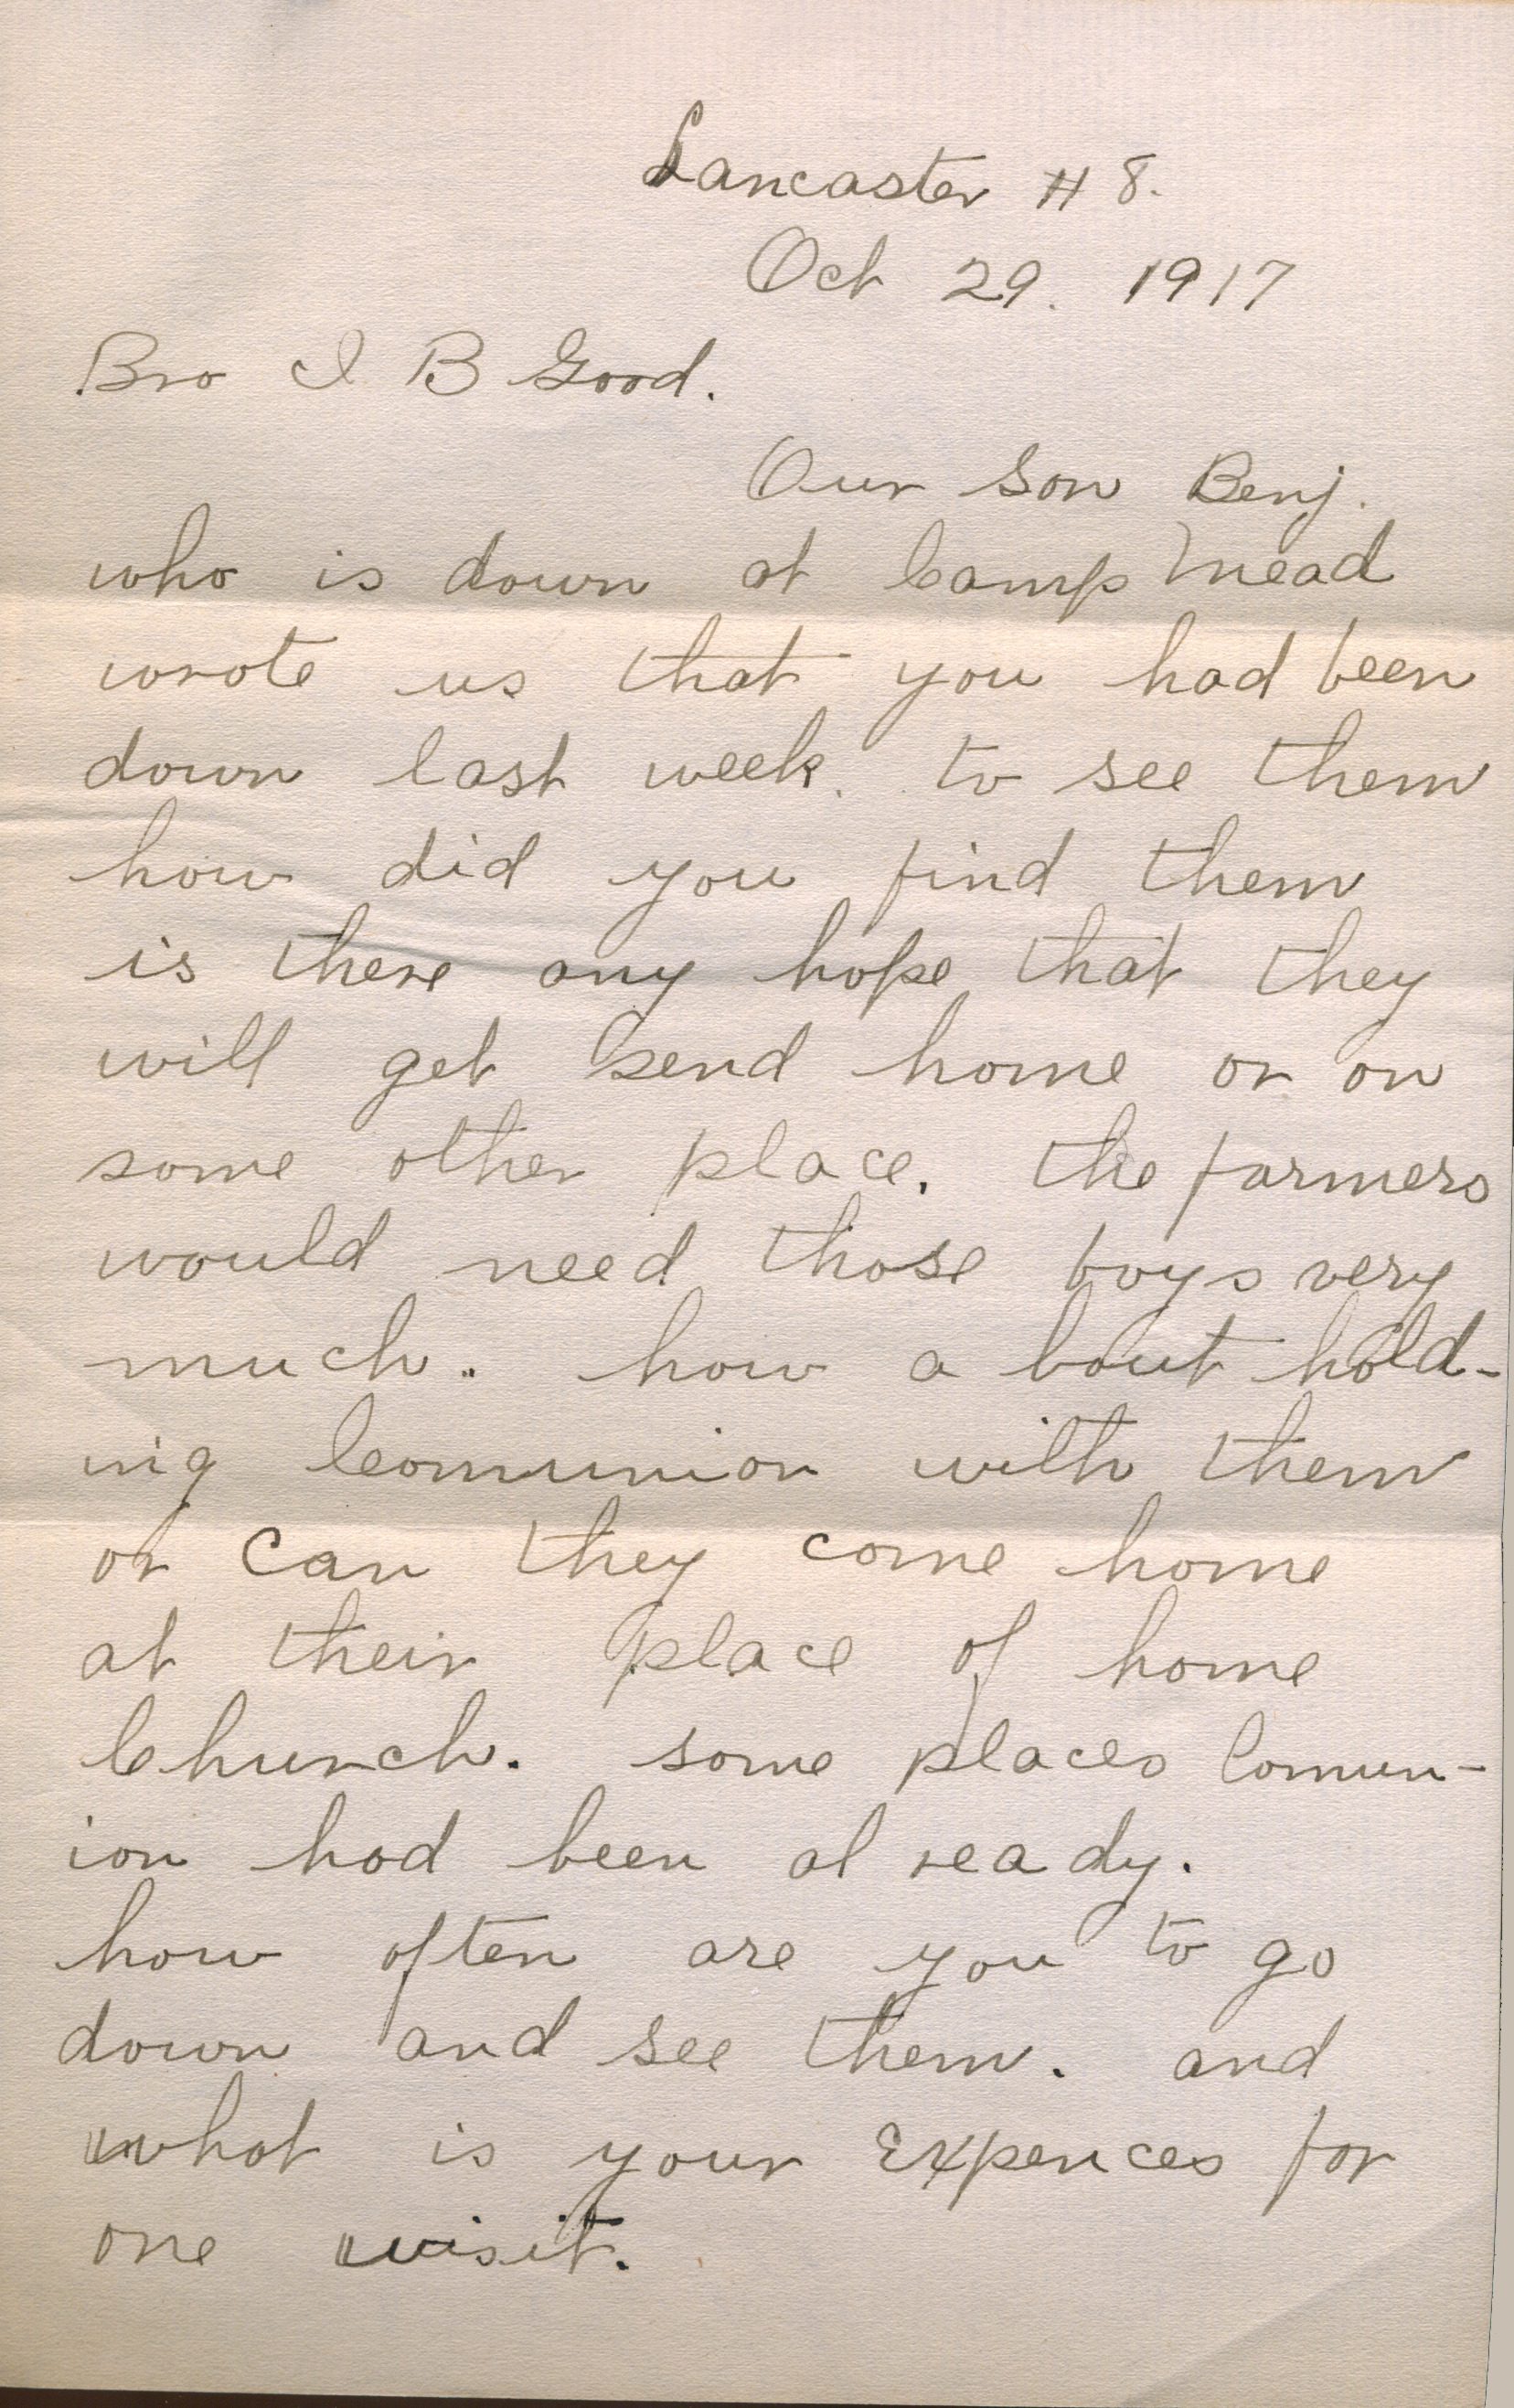 Lancaster # 8.
Oct 29. 1917
Bro I B Good.
Our Son Benj.
who is down at Camp Mead
wrote us that you had been
down last week. to see them
how did you find them
is there any hope that they
will get send home or on
some other place. the farmers
would need those boys very
much. how a bout hold-
ing Comunion with them
or Can they come home
at their place of home
Church. some places Comun-
ion had been al ready.
how often are you to go
down and see them. and
what is your Expences for
one visit.